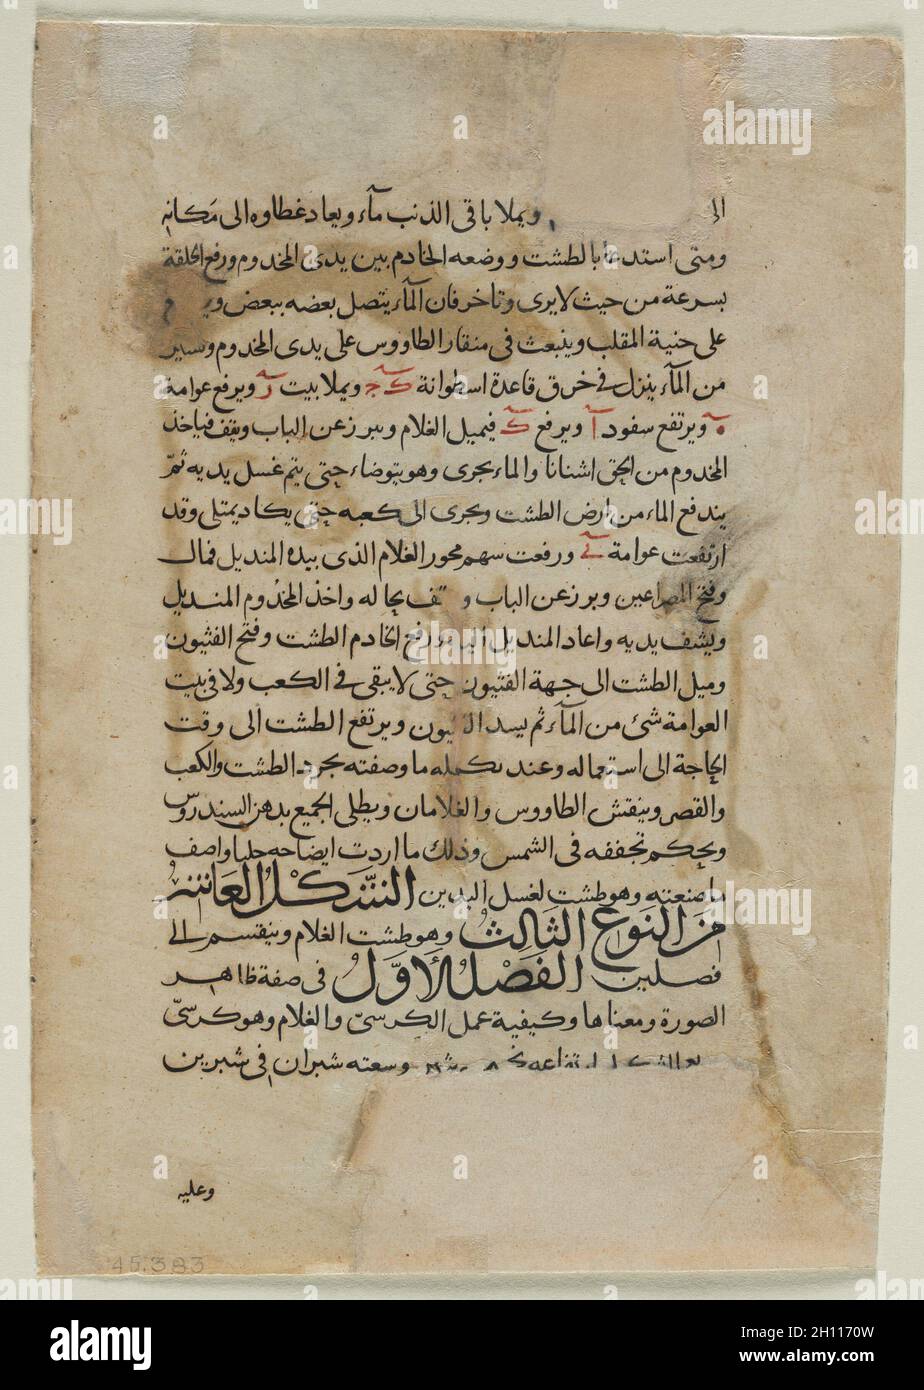 ويملا باقى الذنب مآء ويعاد غطاوه الى مكانه
ومتى استدعا بالطشت ووضعه الخادم بين يدى المخدوم ورفع الحلقة
بسرعة من حيث لا يرى وتاخر فان المآء يتصل بعضه ببعض
على حنية المقلب وينبعث فى منقار الطاووس على يدى المخدوم ويسير
من المآء ينزل فى خرق قاعدة اسطوانة ويملا بيت ويرفع عوامة
ه ويرتفع سفود آ ويرفع كـ فيميل الغلام ويبرز عن الباب ويقف فياخذ
المخدوم من الحق اشنانا والماء يجرى وهو يتوضاء حتى يتم غسل يديه ثم
يندفع الماء من ارض الطشت ويجرى الى كعبه حتى يكاد يمتلى وقد
ارتفعت عوامة ورفعت سهم محور الغلام الذى بيده المنديل فمال
وفتح المصراعين وبرز عن الباب بحاله واخذ المخدوم المنديل
وينشف يديه واعاد المنديل اليه ورفع الخادم الطشت وفتح الفثيون
وميل الطشت الى جهة الفثيون حتى لا يبقى فى الكعب ولا فى بيت
العوامة شئ من المآء ثم يسد الفثيون ويرتفع الطشت الى وقت
الحاجة الى استعماله وعند تكمله ما وصفته يجرد الطشت والكعب
والقصر وينقش الطاووس والغلامان ويطلى الجميع بدهن السندروس
ويحكم تجفيفه فى الشمس وذلك ما اردت ايضاحه جليا واصف
ما صنعته وهو طشت لغسل اليدين الشكل العاشر
من النوع الثالث وهو طشت الغلام وينقسم الى
فصلين الفصل الأول فى صفة ظاهر
الصورة ومعناها وكيفية عمل الكرسى والغلام وهو كرسى
وسعته شبران فى شبرين
وعليه
45.383
alamy
Image ID: 2H1170W
www.alamy.com